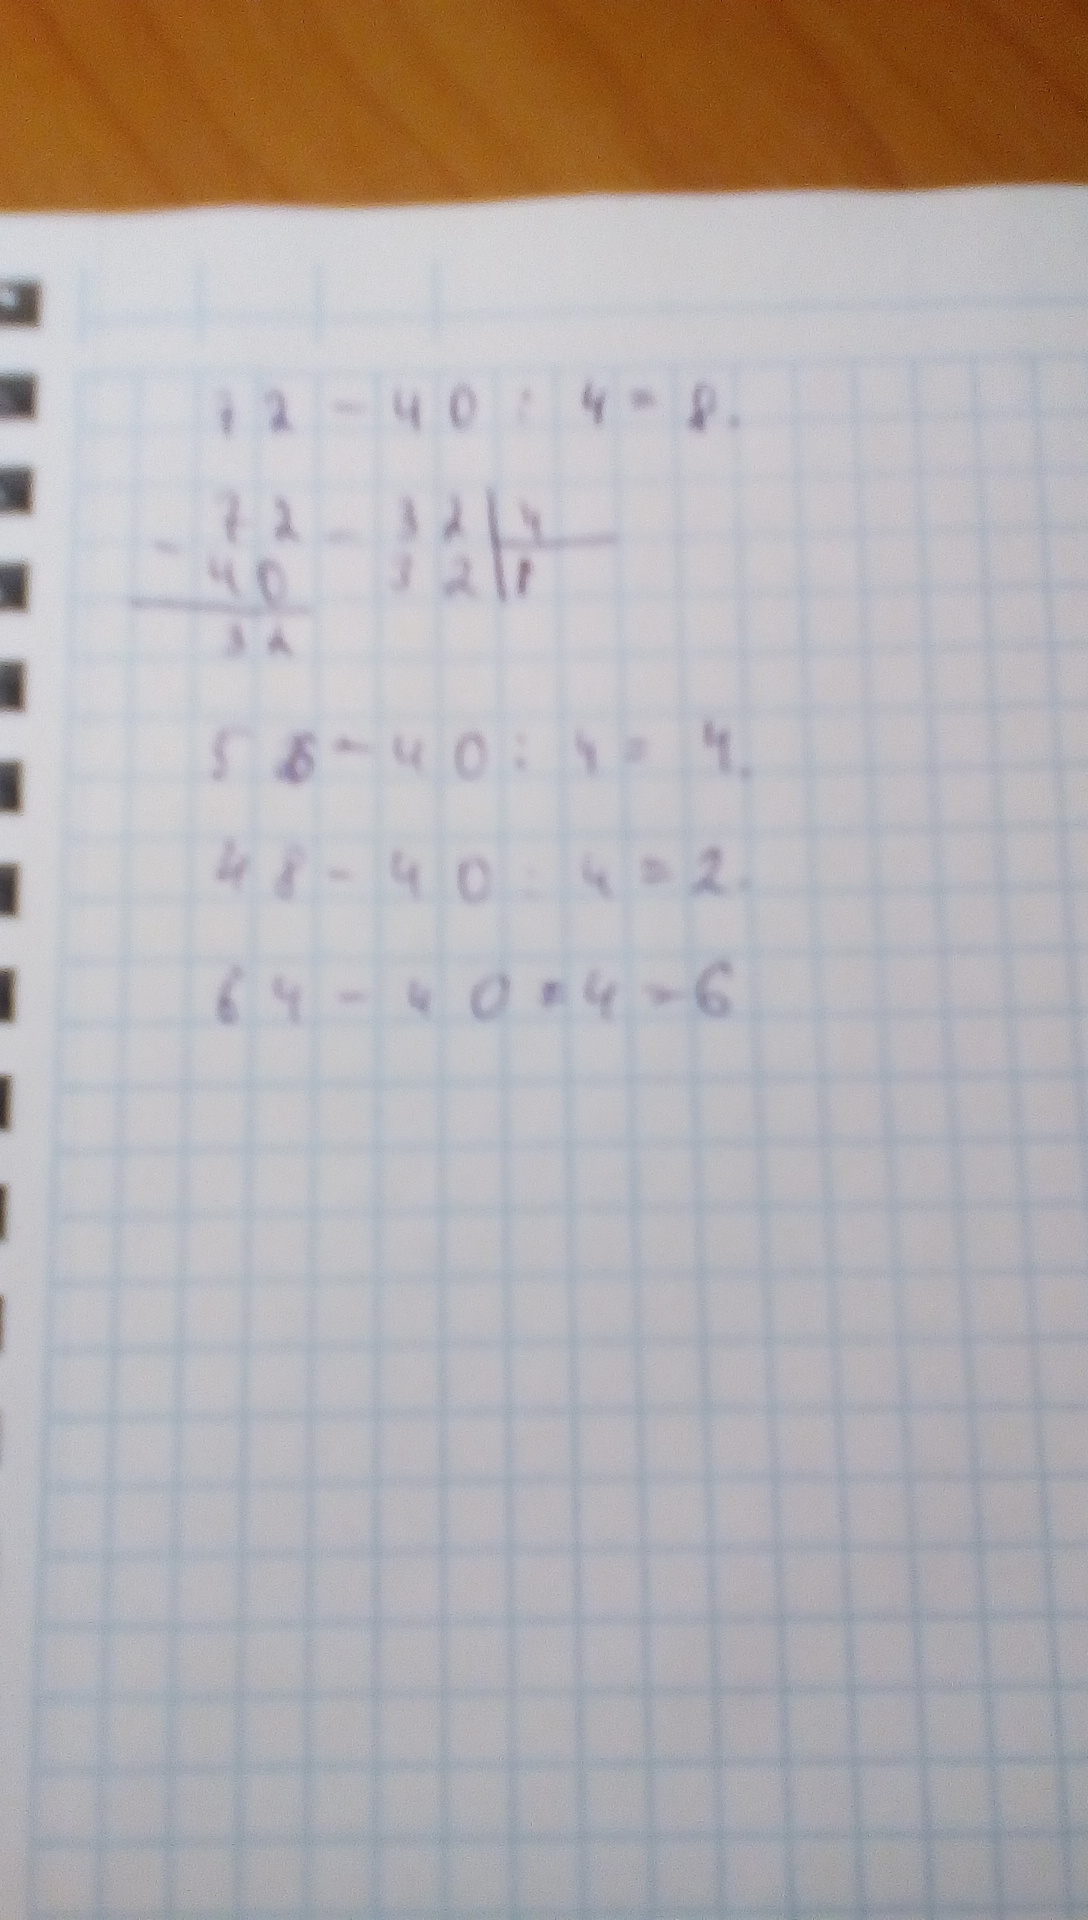 72 - 40 : 4 = 8.
- 72 - 32 | 4
40 32 | 8
32
56 - 40 : 4 = 4.
48 - 40 : 4 = 2.
64 - 40 : 4 = 6